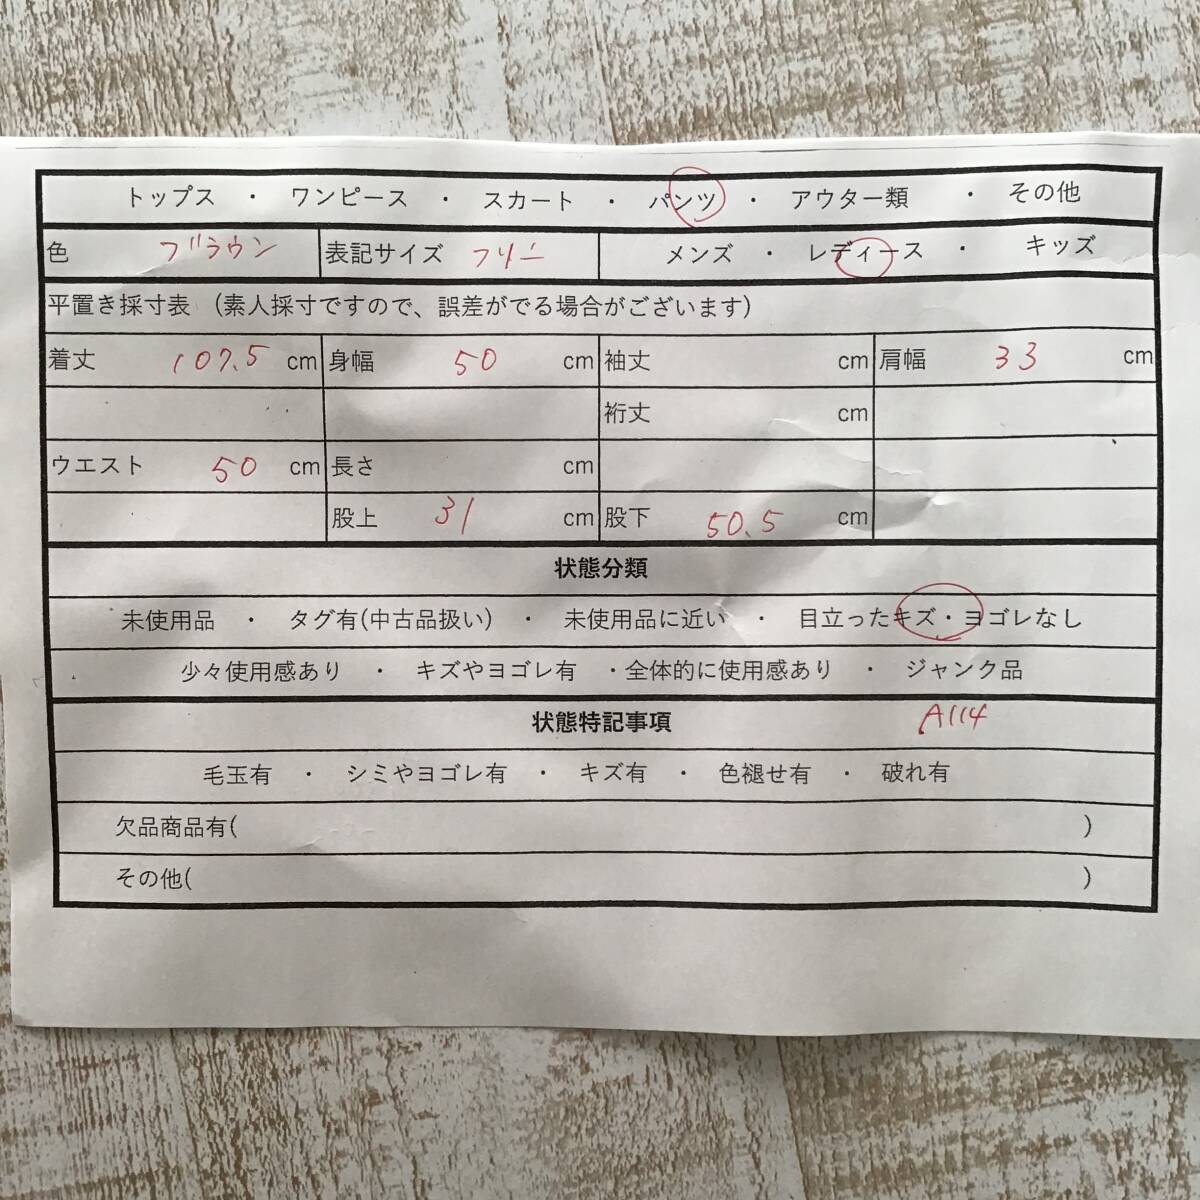 トップス ・ ワンピース ・ スカート ・ パンツ ・ アウター類 ・ その他
色 ブラウン 表記サイズ フリー メンズ ・ レディース ・ キッズ
平置き採寸表 （素人採寸ですので、誤差がでる場合がございます）
着丈 107.5 cm 身幅 50 cm 袖丈 cm 肩幅 33 cm
裄丈 cm
ウエスト 50 cm 長さ cm
股上 31 cm 股下 50.5 cm
状態分類
未使用品 ・ タグ有(中古品扱い) ・ 未使用品に近い ・ 目立ったキズ・ヨゴレなし
少々使用感あり ・ キズやヨゴレ有 ・全体的に使用感あり ・ ジャンク品
状態特記事項 A114
毛玉有 ・ シミやヨゴレ有 ・ キズ有 ・ 色褪せ有 ・ 破れ有
欠品商品有( )
その他( )